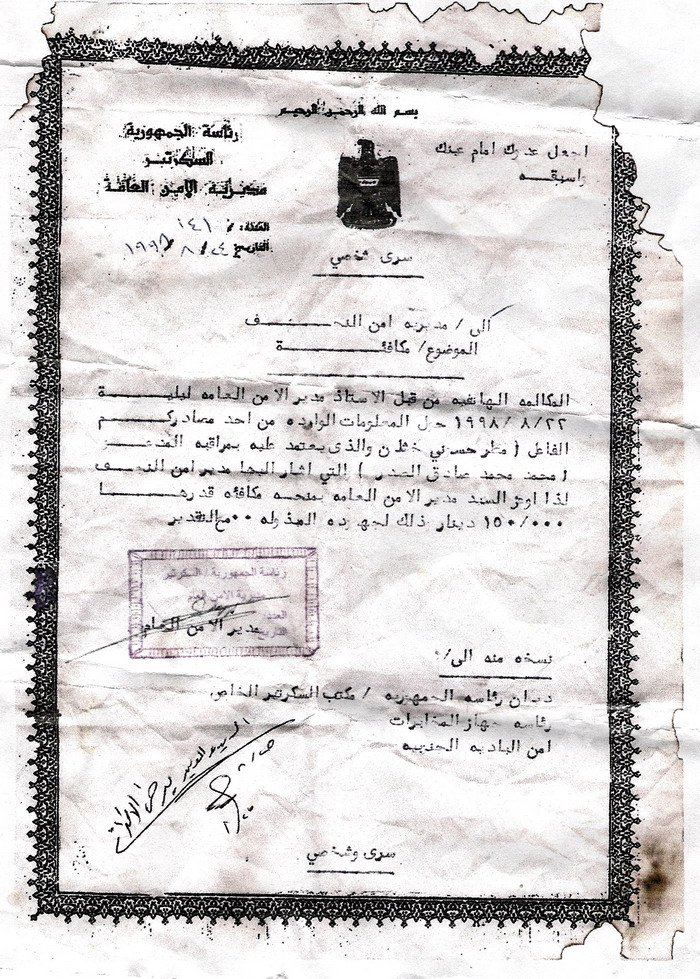 بسم الله الرحمن الرحيم
رئاسة الجمهورية
السكرتير
مديرية الامن العامة
اجعل عدوك امام عينك
واسبقه
العدد: ١٤١
التاريخ ١٩٩٨/٨/٢٤
سرى شخصي
الى / مديريه امن النجف
الموضوع/ مكافئة
المكالمه الهاتفيه من قبل الاستاذ مدير الامن العامه ليلية
١٩٩٨/٨/٢٢ حول المعلومات الوارده من احد مصادركم
الفاعل ( مطر حسني والذى يعتمد عليه بمراقبه المدعو
( محمد محمد صادق الصدر ) التي اشار اليها مدير امن النجف
لذا اوعز السيد مدير الامن العامه بمنحه مكافئه قدرها
١٥٠/٠٠٠ دينار ذلك لجهوده المبذوله ٠٠ مع التقدير
رئاسة الجمهورية - السكرتير
مديرية الامن العام
العدد
التاريخ
مدير الامن العام
نسخه منه الى/
ديوان رئاسه الجمهوريه / مكتب السكرتير الخاص
رئاسه جهاز المخابرات
امن الباديه الجنوبيه
السيد المدير
سرى وشخصي